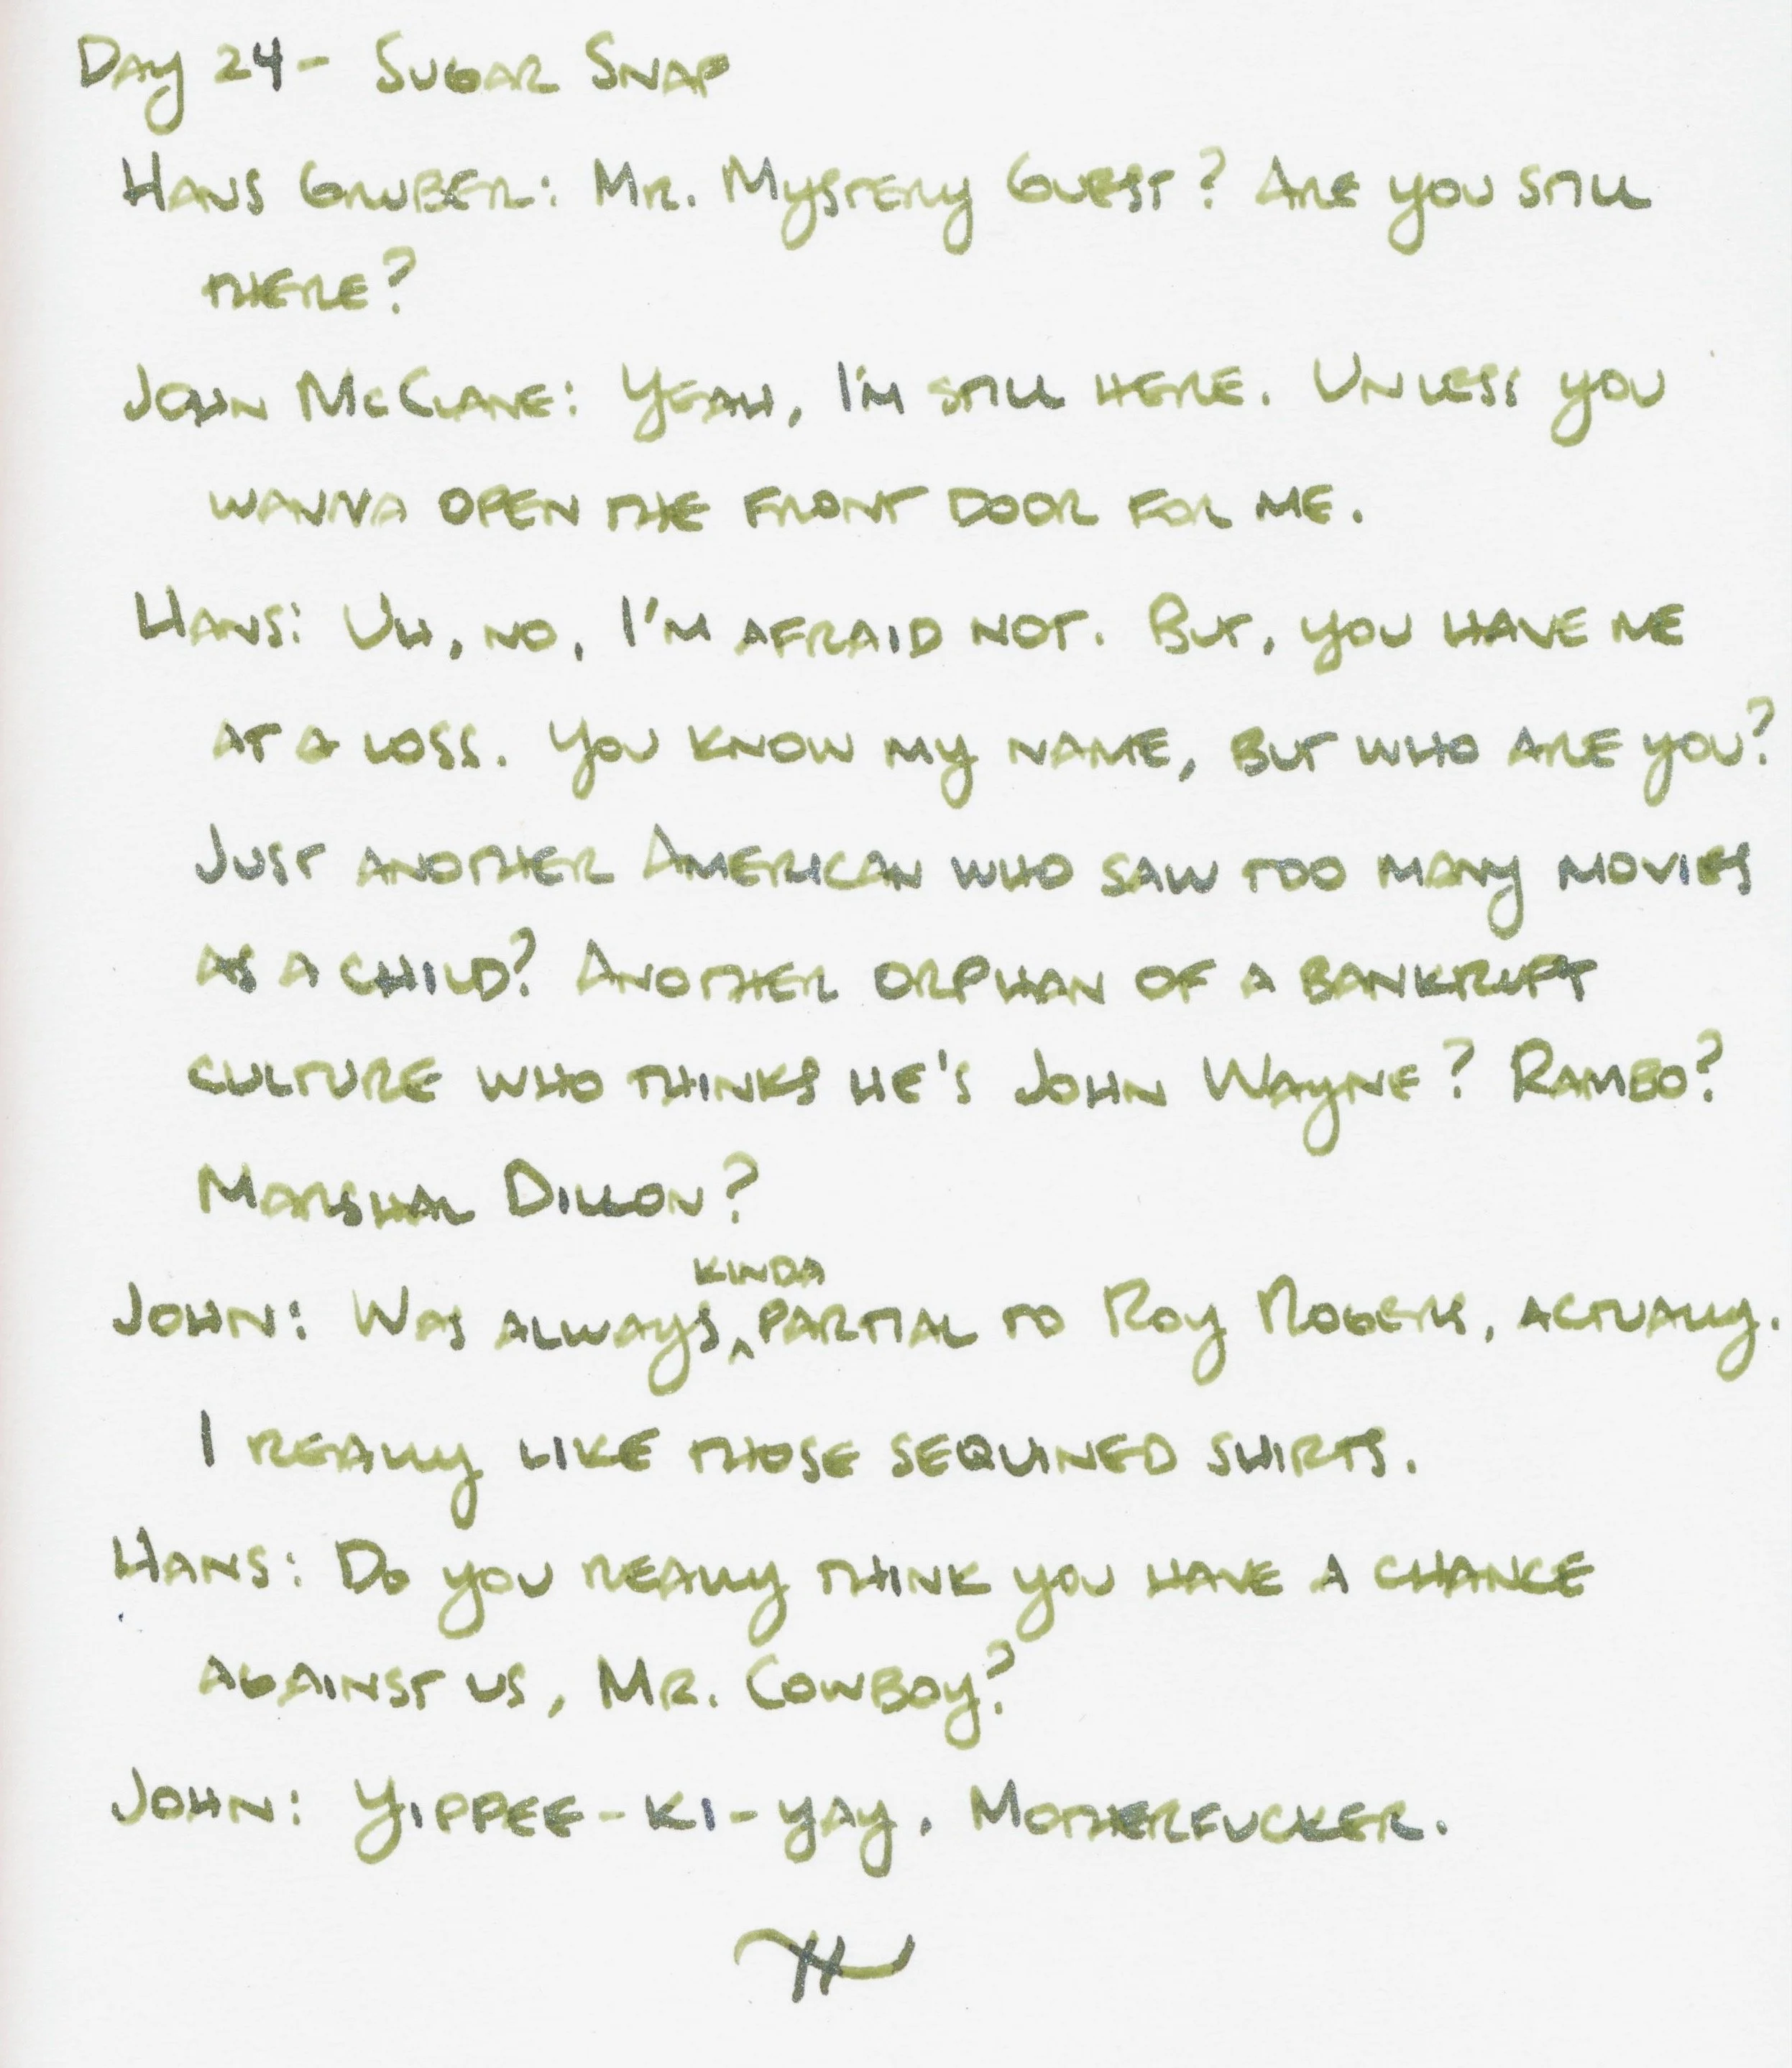 Day 24 - Sugar Snap
Hans Gruber: Mr. Mystery Guest? Are you still
there?
John McClane: Yeah, I'm still here. Unless you
wanna open the front door for me.
Hans: Uh, no, I'm afraid not. But, you have me
at a loss. You know my name, but who are you?
Just another American who saw too many movies
as a child? Another orphan of a bankrupt
culture who thinks he's John Wayne? Rambo?
Marshal Dillon?
John: Was always ^kinda partial to Roy Rogers, actually.
I really like those sequined shirts.
Hans: Do you really think you have a chance
against us, Mr. Cowboy?
John: Yippee-ki-yay, Motherfucker.